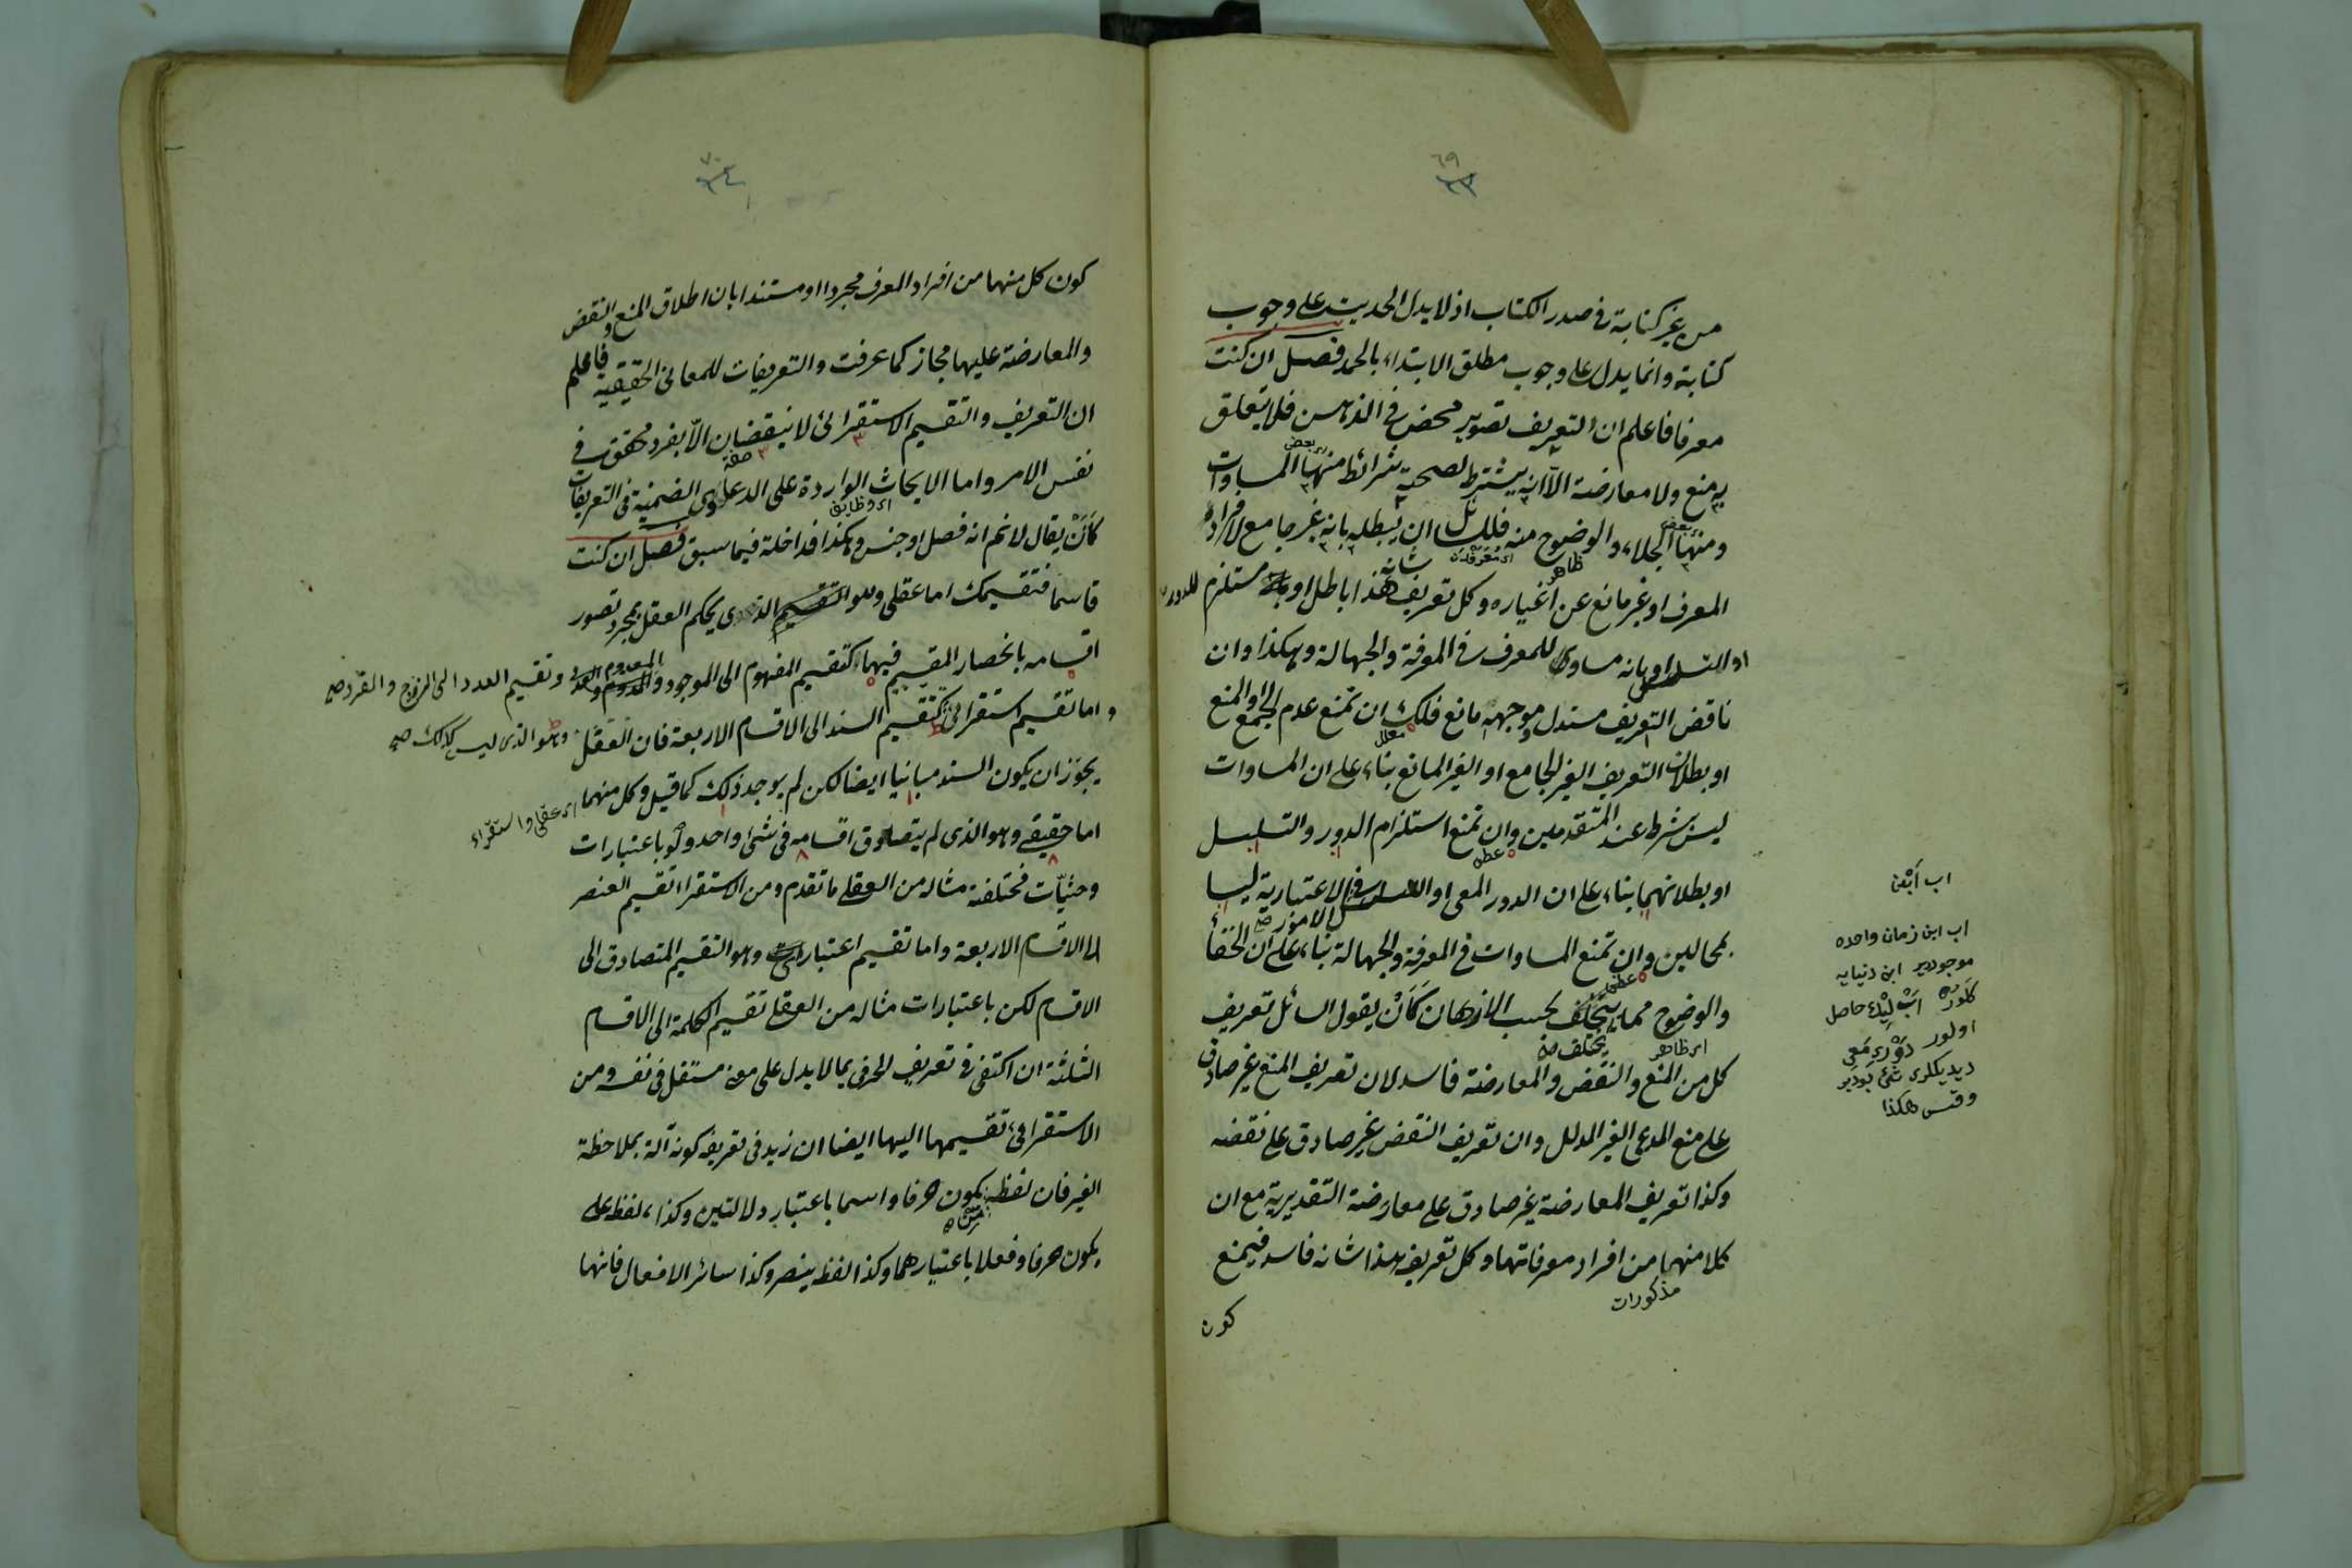 ٦٩
٢٣
من غير كتابة فى صدر الكتاب اذ لا يدل الحديث على وجوب
كتابة وانما يدل على وجوب مطلق الابتداء بالحمد فصل ان كنت
معرفا فاعلم ان التعريف تصوير محض فى الذهن فلا يتعلق
به منع ولا معارضة الا انه يشترط لصحته شرائط منها المساوات
ومنها الجلاء والوضوح منه فللسائل ان يبطله بانه غير جامع لافراد
المعرف او غير مانع عن اغياره وكل تعريف هذا شانه باطل او بانه مستلزم للدور
او التسلسل او بانه مساوى للمعرف فى المعرفة والجهالة وهكذا وان
ناقض التعريف مستدل وموجهه مانع فلك ان تمنع عدم الجمع او المنع
او بطلان التعريف الغير الجامع او الغير المانع بناء على ان المساوات
ليس بشرط عند المتقدمين وان تمنع استلزام الدور والتسلسل
او بطلانهما بناء على ان الدور المعى او التسلسل فى الامور الاعتبارية ليسا
بمحالين وان تمنع المساوات فى المعرفة والجهالة بناء على ان الخفاء
والوضوح مما يختلف بحسب الازهان كَاَنْ يقول السائل تعريف
كل من المنع والنقض والمعارضة فاسد لان تعريف المنع غير صادق
على منع المدعى الغير المدلل وان تعريف النقض غير صادق على نقضه
وكذا تعريف المعارضة غير صادق على معارضة التقديرية مع ان
كلا منهما من افراد معرفاتهما وكل تعريف هذا شانه فاسد فيمنع
مذكورات
كون
اب اَبْنْ
اب ابن زمان واحده
موجوددير ابن دنيايه
كلور اب ليْك حاصل
اولور دَوْرِ مَعى
ديديكلرى شئ بودير
وقس هكذا
٧٠
٢٤
كون كل منهما من افراد المعرف مجردا او مستندا بان اطلاق المنع والنقض
والمعارضة عليها مجاز كما عرفت والتعريفات للمعانى الحقيقية فاعلم
ان التعريف والتقسيم الاستقرائى لا ينقضان الّا بفرد محقق فى
نفس الامر واما الابحاث الواردة على الدعاوى الضمنية فى التعريفات
كَاَنْ يقال لا نم انه فصل او جنس وهكذا فداخلة فيما سبق فصل ان كنت
قاسما فتقسيمك اما عقلى وهو التقسيم الذى يحكم العقل بمجرد تصور
اقسامه بانحصار المقسم فيهما كتقسيم المفهوم الى الموجود والمعدوم وتقسيم العدد الى الزوج والفرد صح
واما تقسيم استقرائى وهو الذى ليس كذلك صح كتقسيم السند الى الاقسام الاربعة فان العقل
يجوّز ان يكون السند مباينا ايضا لكن لم يوجد ذلك كما قيل وكل منهما
اى عقلى واستقراء
اما حقيقى وهو الذى لم يتصادق اقسامه فى شئ واحد ولو باعتبارات
وحثيّات مختلفة مثاله من العقلى ما تقدم ومن الاستقراء تقسيم العنصر
الى الاقسام الاربعة واما تقسيم اعتبارى وهو التقسيم المتصادق الى
الاقسام لكن باعتبارات مثاله من العقلى تقسيم الكلمة الى الاقسام
الثلثة ان اكتفى فى تعريف الحرف بما لا يدل على معنى مستقل فى نفسه ومن
الاستقرائى تقسيمها اليها ايضا ان زيد فى تعريفه كونه آلة بملاحظة
الغير فان لفظ من يكون حرفا واسما باعتبار دلالتين وكذا لفظ على
يكون حرفا وفعلا باعتبارهما وكذا لفظ ينصر وكذا سائر الافعال فانها